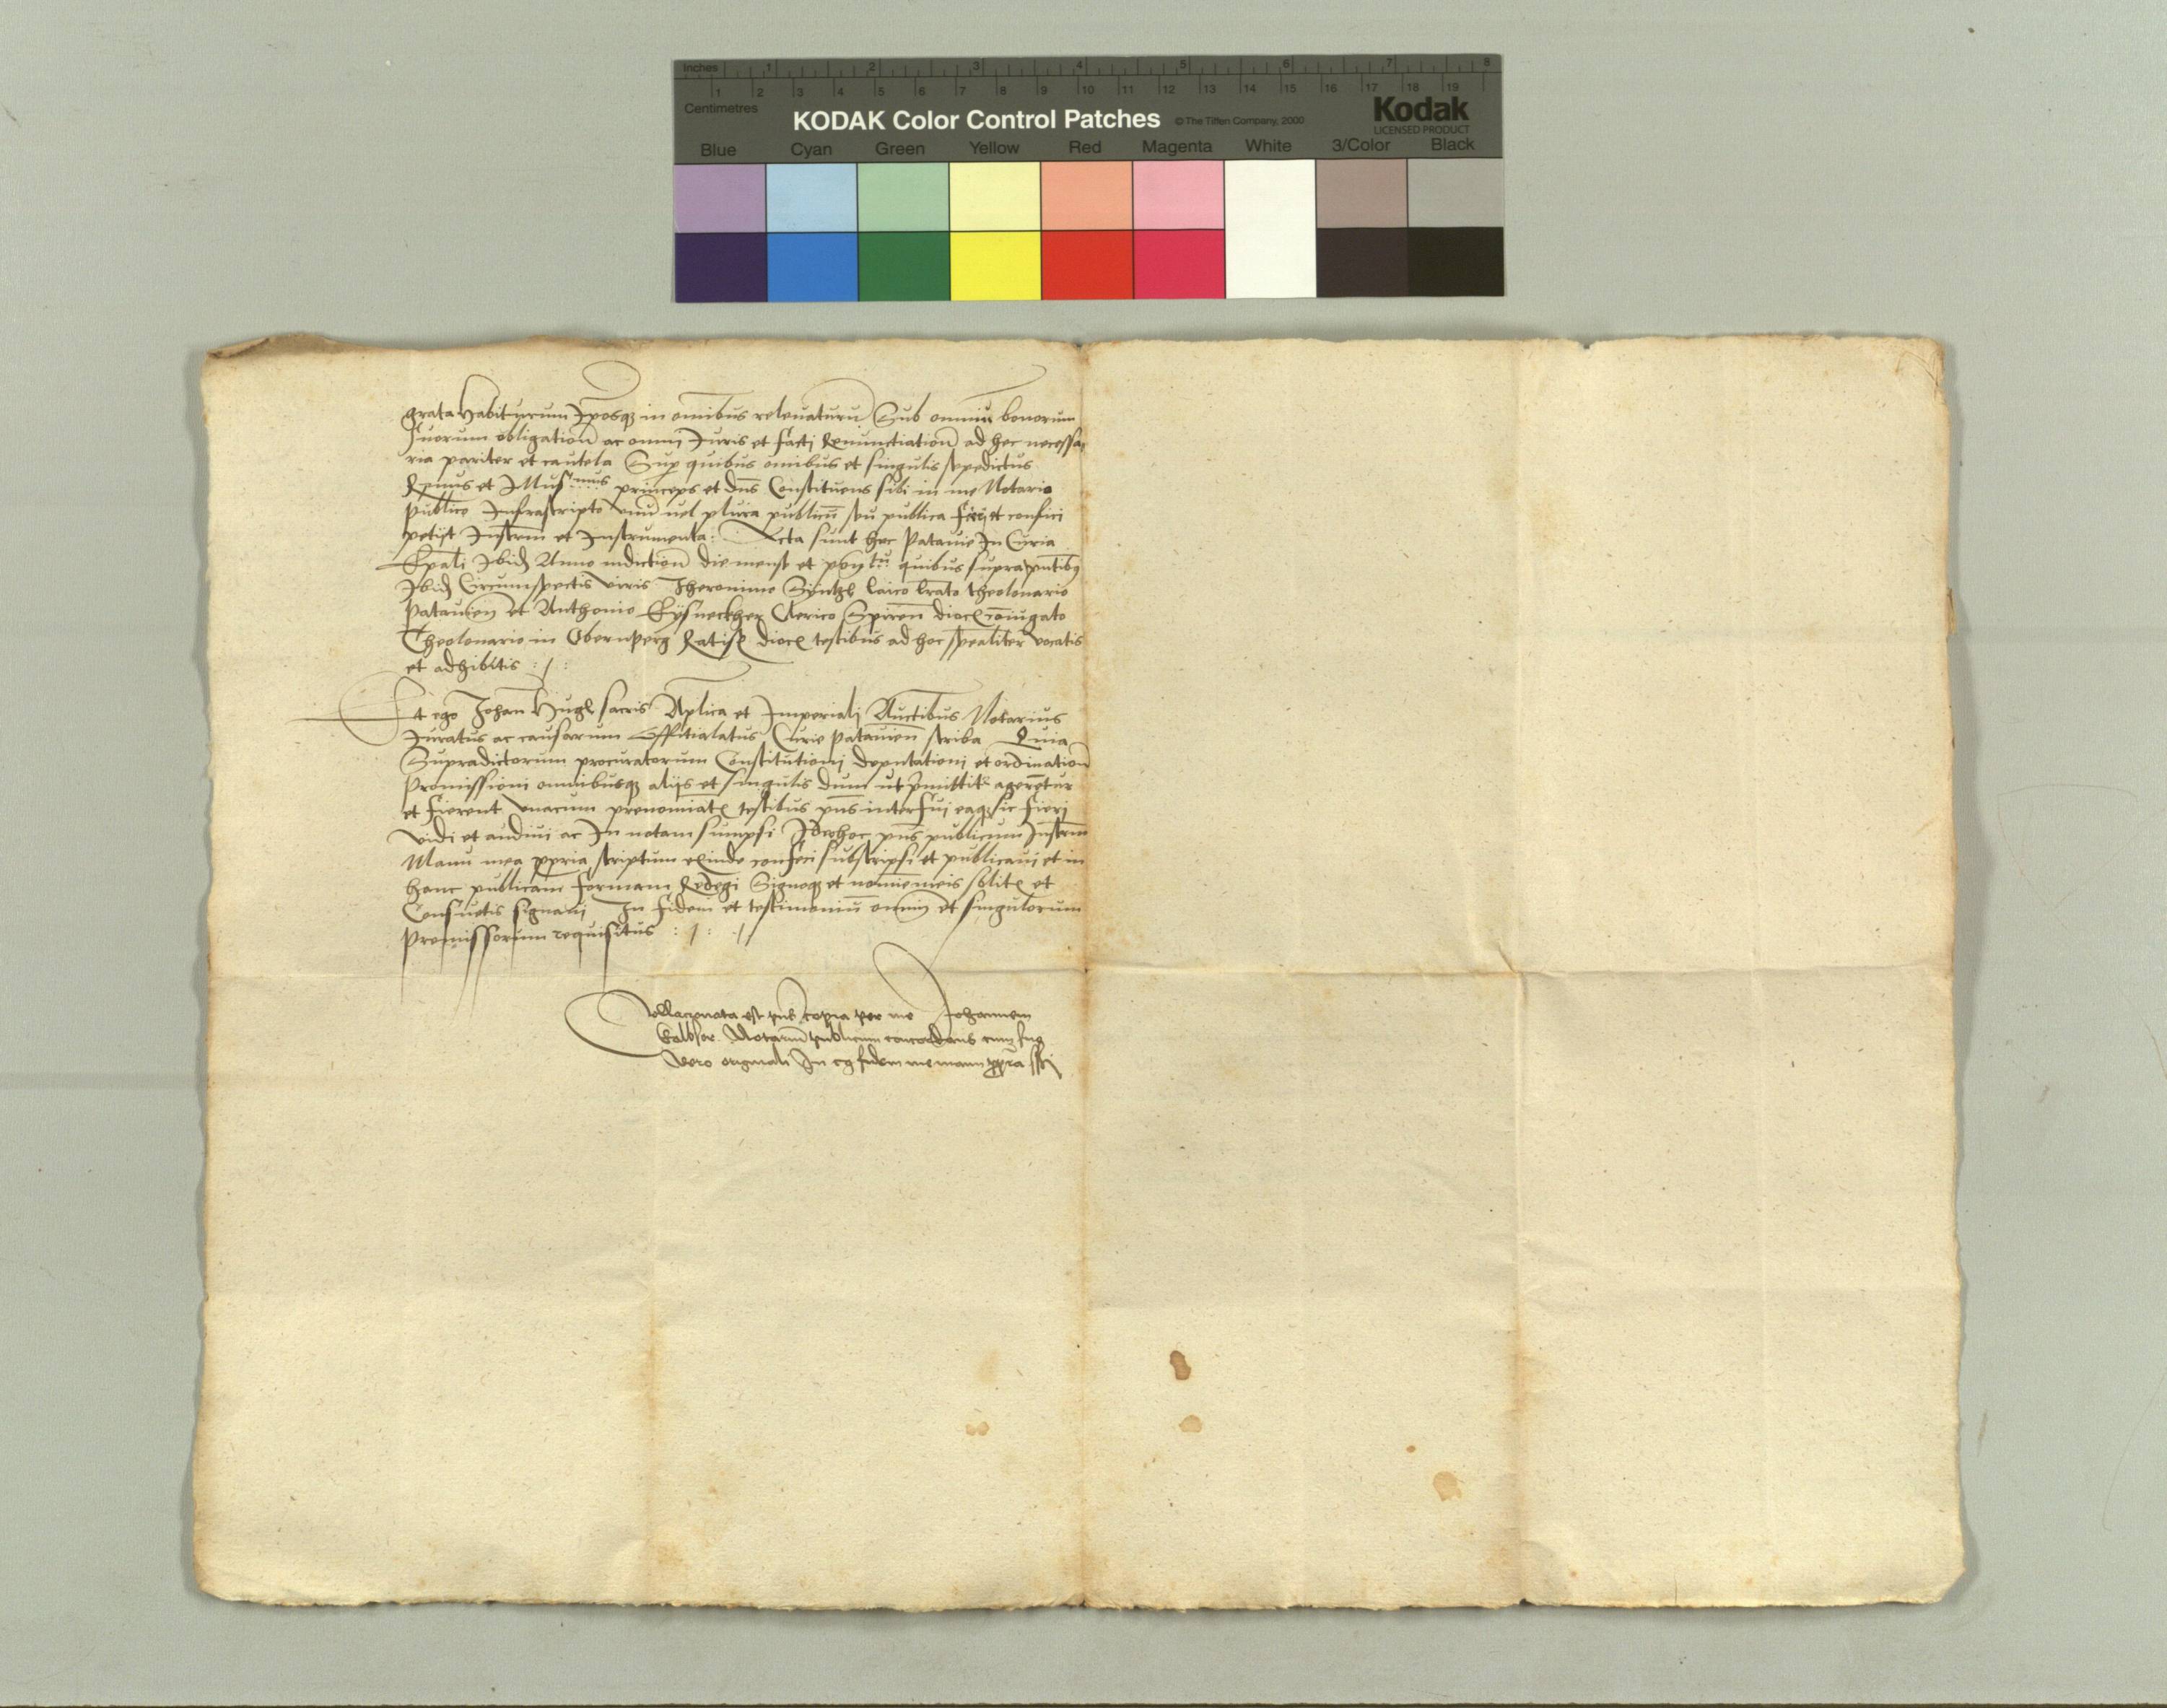 Inches 1 2 3 4 5 6 7 8
1 2 3 4 5 6 7 8 9 10 11 12 13 14 15 16 17 18 19
Centimetres
KODAK Color Control Patches © The Tiffen Company, 2000 Kodak
LICENSED PRODUCT
Blue Cyan Green Yellow Red Magenta White 3/Color Black
grata habiturum Iposq in om̄ibus releuaturū Sub omniū bonorum
suorum obligation̄ ac omnj Juris et factj Renunctiation̄ ad hec necessa
ria pariter et cautela Sup quibus om̄ibus et singulis sepedictus
R̄mus et Illusmus princeps et dn̄s Constituens sibi in me Notario
publico Infrascripto vnū uel plura publicū seu publica fierj et confici
petijt Instrm̄ et Instrumenta: Acta sunt hec Patauie In Curia
Ep̄ali Ibid Anno indiction̄ die mense et quibus supra pn̄tibus
Ibid Circumspectis viris Iheronimo laico theolonario
Patauien̄ et Anthonio Clerico dioc coniugato
Theolonario in Obernperg dioc testibus ad hoc sp̄ealiter vocatis
et adhibitis : / :
Et ego Johan̄ Hugl sacris Ap̄lica et Imperialj Auctibus Notarius
Juratus ac causarum Offitialatus Curie Patauien̄ scriba Quia
Supradictorum procuratorum Constitutionj deputationj et ordination̄
Promissioni omnibusq alijs et singulis dum ut p̄mittit agerētur
et fierent vnacum prenomiat testibus pn̄s interfuj eaq sic fierj
vidi et audiui ac In notam sumpsi Ideo hoc pn̄s publicum Instrm̄
Manu mea ppria scriptum exinde confeci subscripsi et publicauj et in
hanc publicam formam Redegi Signoq et nomīe meis solit et
Consuetis signauj In fidem et testimoniū omniū et singulorum
Premissorum requisitus : / : /
Collacionata est pn̄s copia per me Johannem
Notariū publicum concordans cum suo
vero originali In fidem me manu ppria